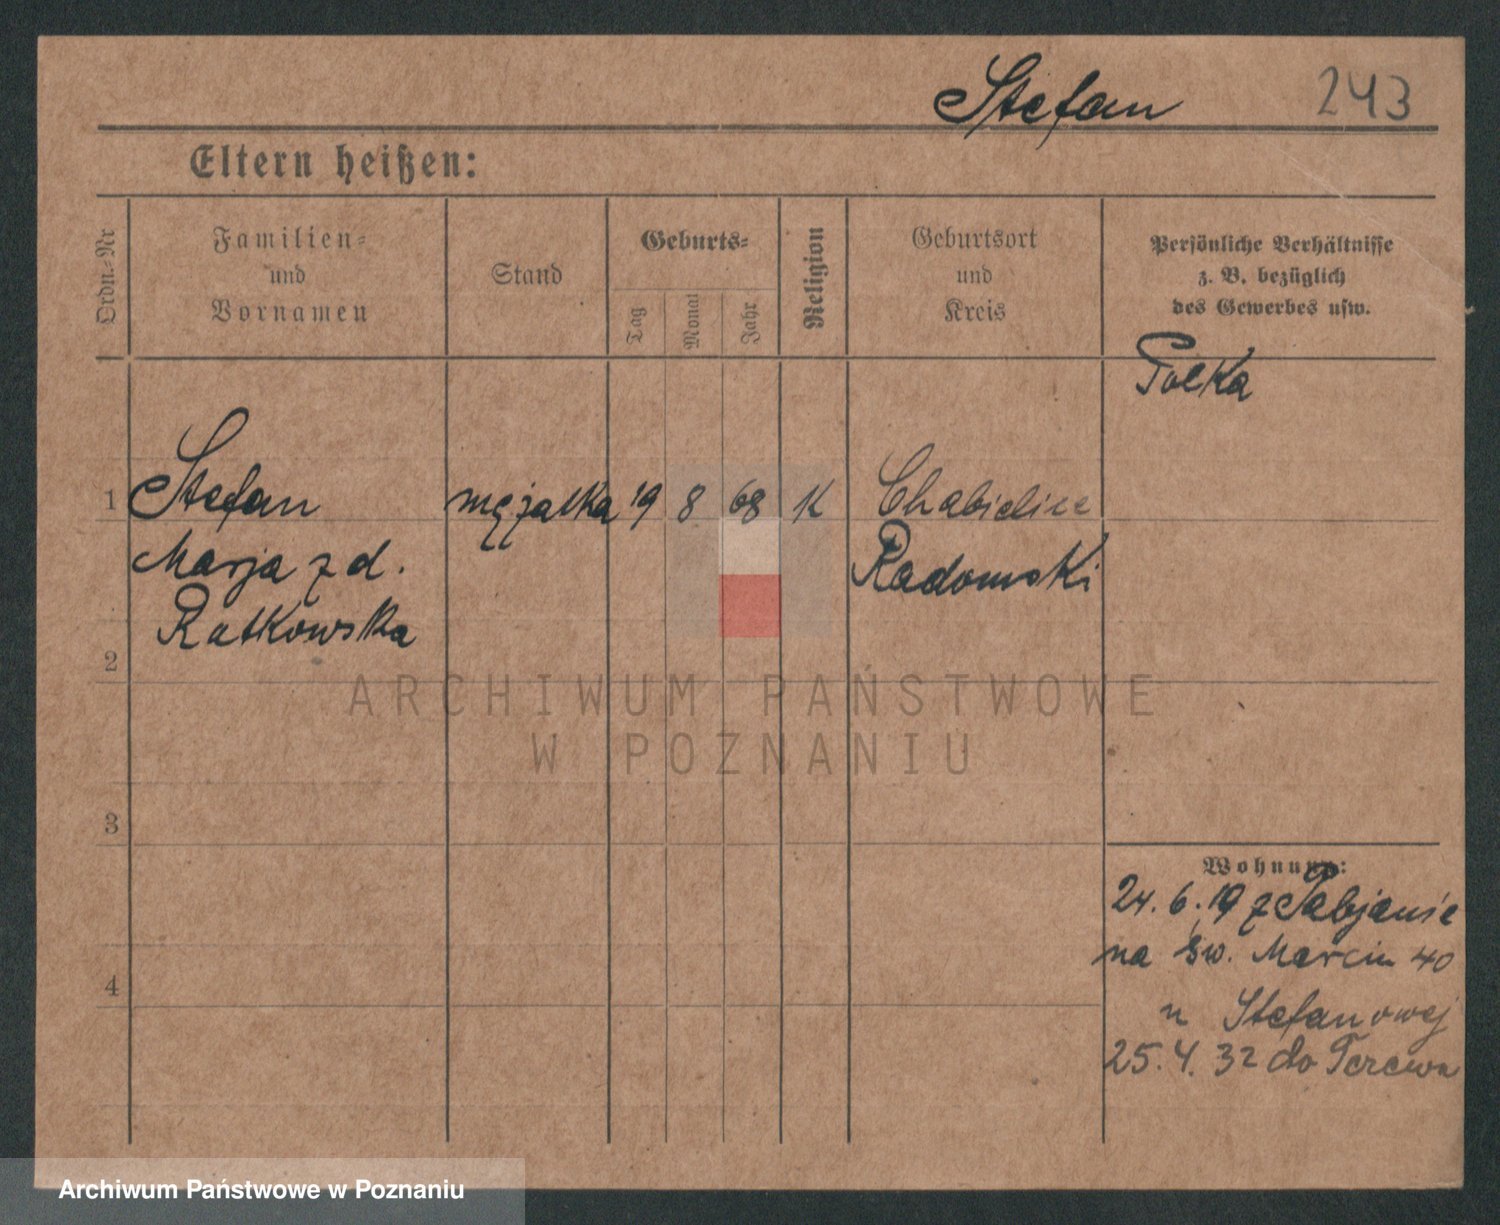 Stefan 243
Eltern heißen:
Ordn.-Nr
Familien-
und
Vornamen
Stand
Geburts-
Tag
Monat
Jahr
Religion
Geburtsort
und
Kreis
Persönliche Verhältnisse
z. B. bezüglich
des Gewerbes usw.
Polka
1 Stefan mężatka 19 8 68 K Chabielice
Marja z d. Radomski
Ratkowska
2
3
4
Wohnung:
24. 6. 19 z Pabjanic
na św. Marcin 40
u Stefanowej
25. 4. 32 do
ARCHIWUM PAŃSTWOWE
W POZNANIU
Archiwum Państwowe w Poznaniu